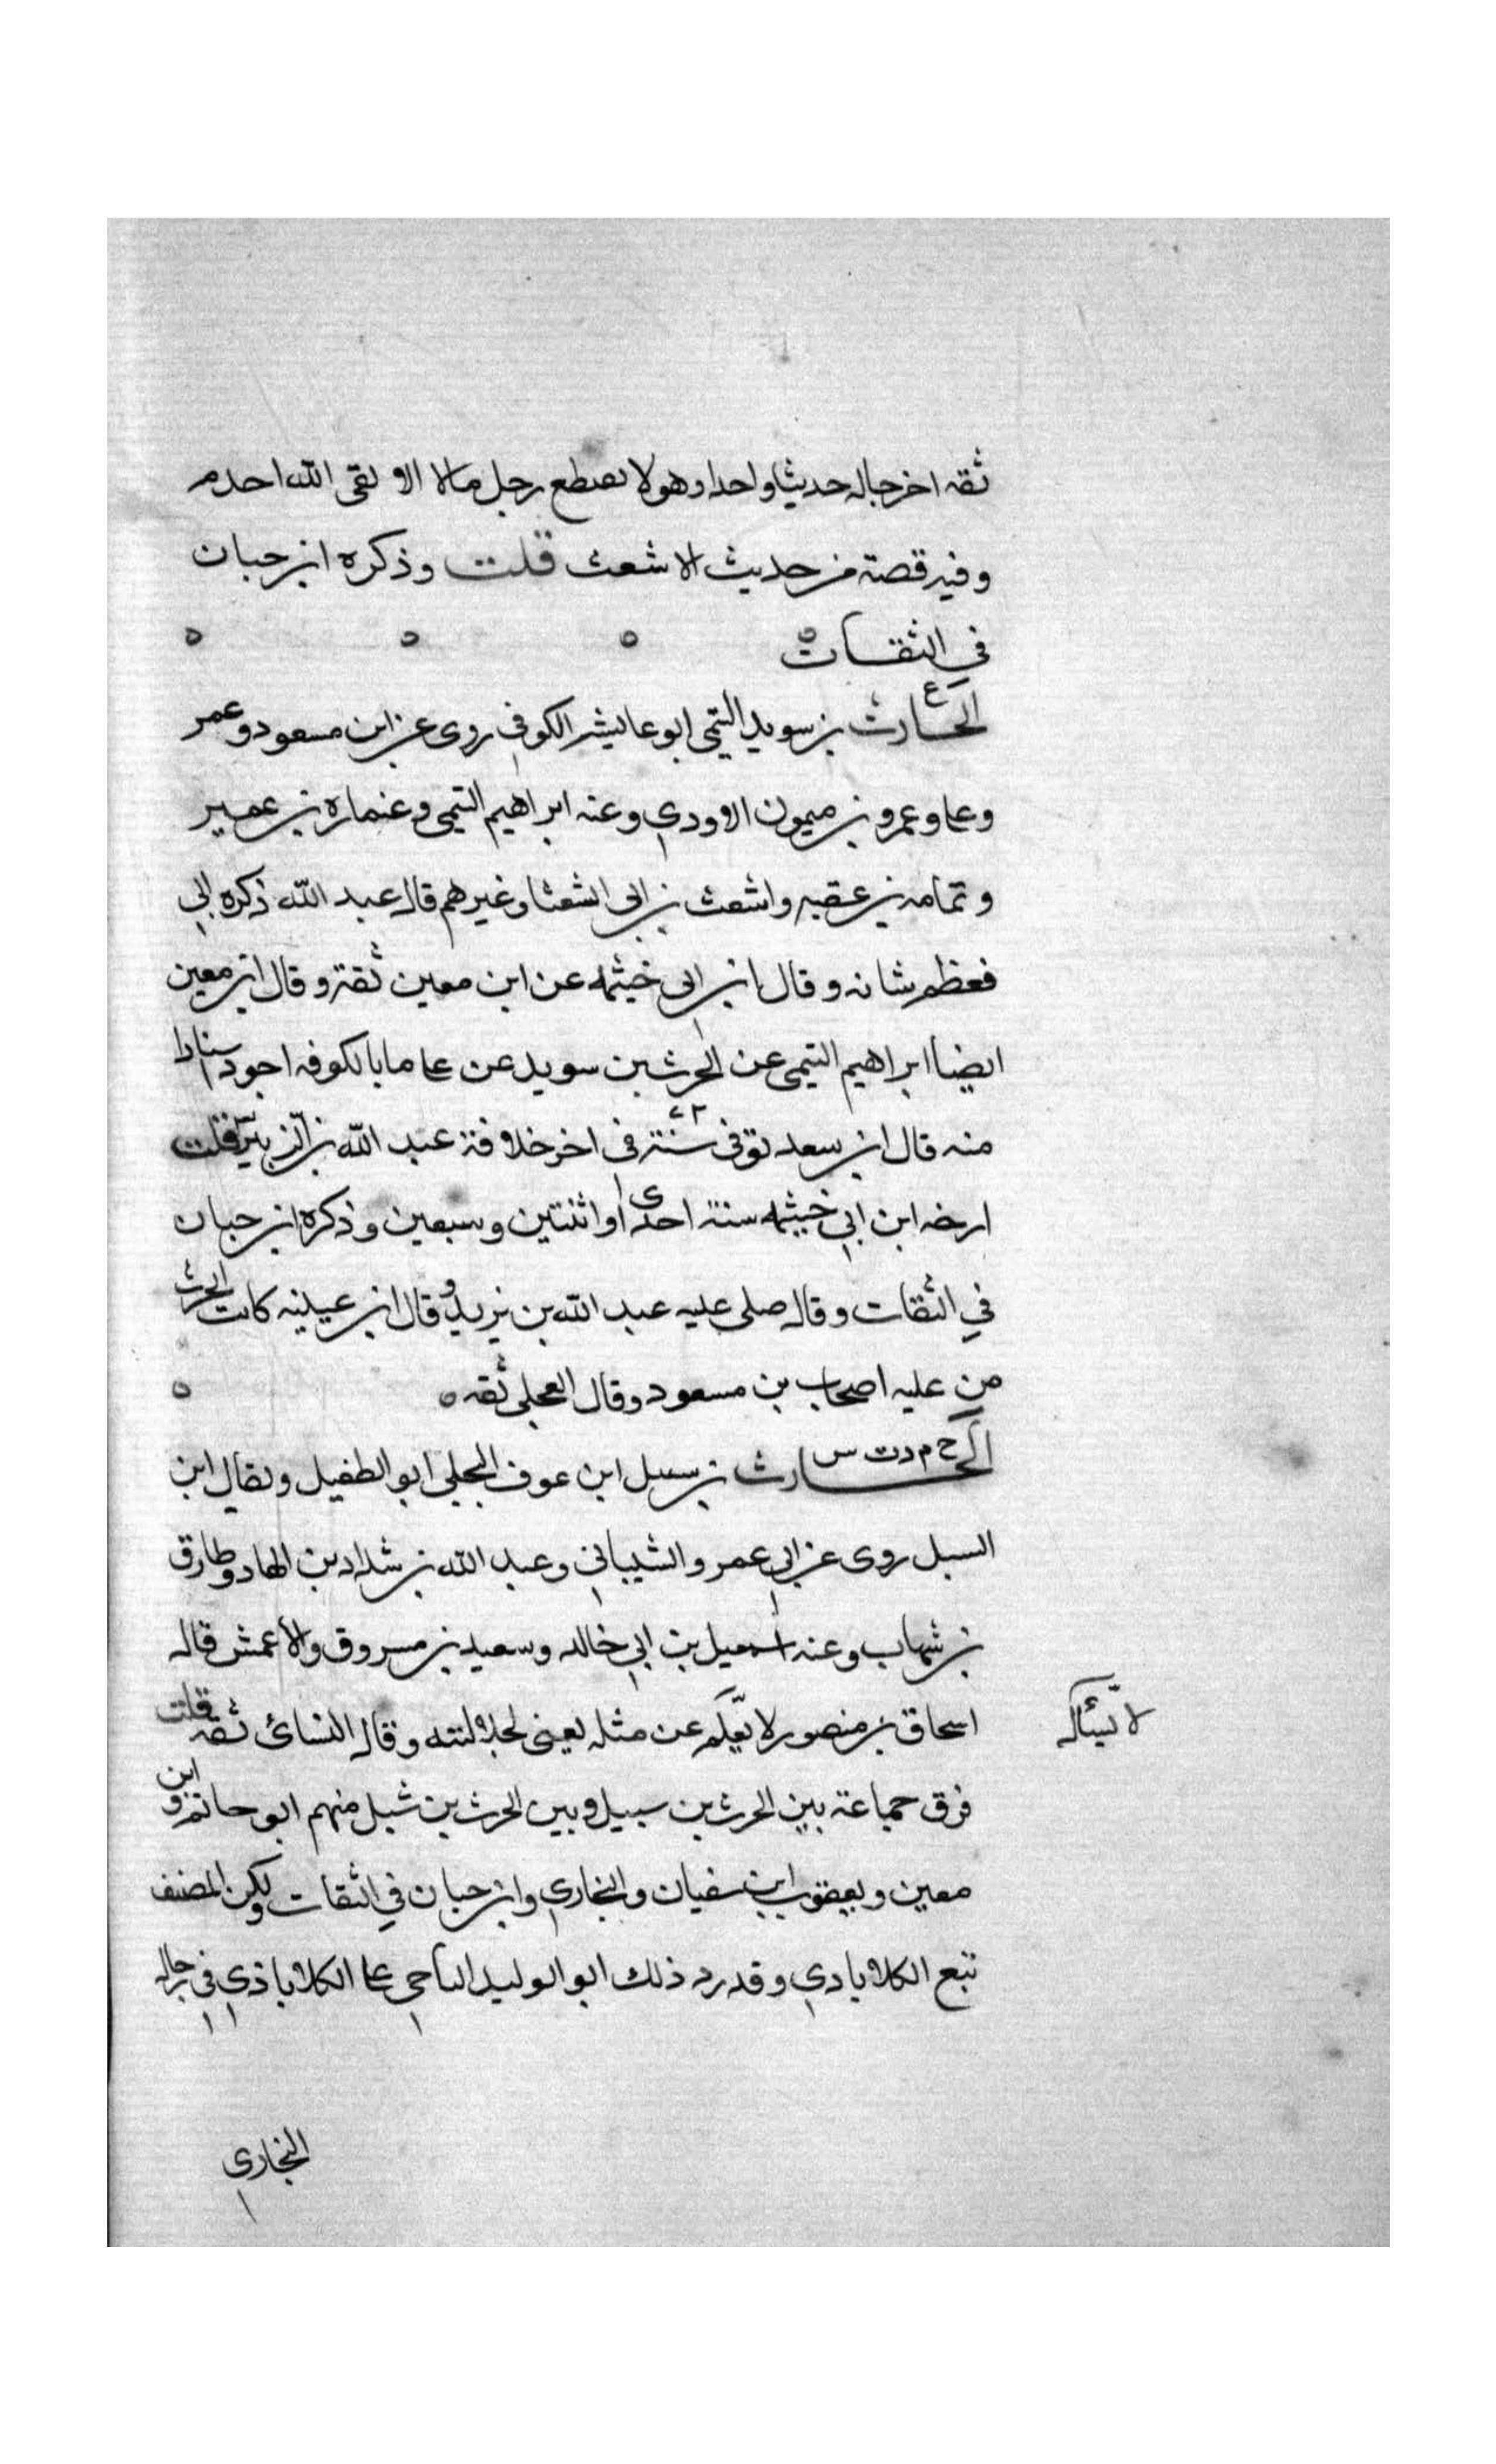 ثقه اخرجاله حديثا واحدا وهو لا يصطع رجل مالا الا لقى الله اجذم
وفيه قصة من حديث الاشعث قلت وذكره ابن حبان
في الثقات
ع
الحارث بن سويد التيمى ابو عايشه الكوفي روى عن ابن مسعود وعمر
وعلى وعمرو بن ميمون الاودي وعنه ابراهيم التيمى وعمارة بن عمير
وثمامه بن عقبه واشعث بن ابى الشعثا وغيرهم قال عبد الله ذكره ابي
فعظم شانه وقال ابن ابى خيثمه عن ابن معين ثقة وقال ابن معين
ايضا ابراهيم التيمى عن الحرث بن سويد عن على ما بالكوفه اجود اسنادا
منه قال ابن سعد توفى سنة في اخر خلافة عبد الله بن الزبير قلت
ارخه ابن ابي خيثمه سنة احدى او اثنتين وسبعين وذكره ابن حبان
في الثقات وقال صلى عليه عبد الله بن يزيد وقال ابن عيينه كان الحرث
من عليه اصحاب بن مسعود وقال العجلى ثقه
خ م د ت س
الحارث بن سبيل ابن عوف البجلى ابو الطفيل ويقال ابن
السبل روى عن ابي عمرو الشيباني وعبد الله بن شداد بن الهاد وطارق
بن شهاب وعنه اسمعيل بن ابي خالد وسعيد بن مسروق والاعمش قال
اسحاق بن منصور لا يعلم عن مثله يعنى لجلالته وقال النسائ ثقة قلت
لا يسئال
فرق جماعة بين الحرث بن سبيل وبين الحرث بن شبل منهم ابو حاتم وابن
معين ويعقوب ابن سفيان والبخاري وابن حبان في الثقات ولكن المصنف
تبع الكلابادي وقد رد ذلك ابو الوليد الباجي على الكلاباذي في رجال
البخاري